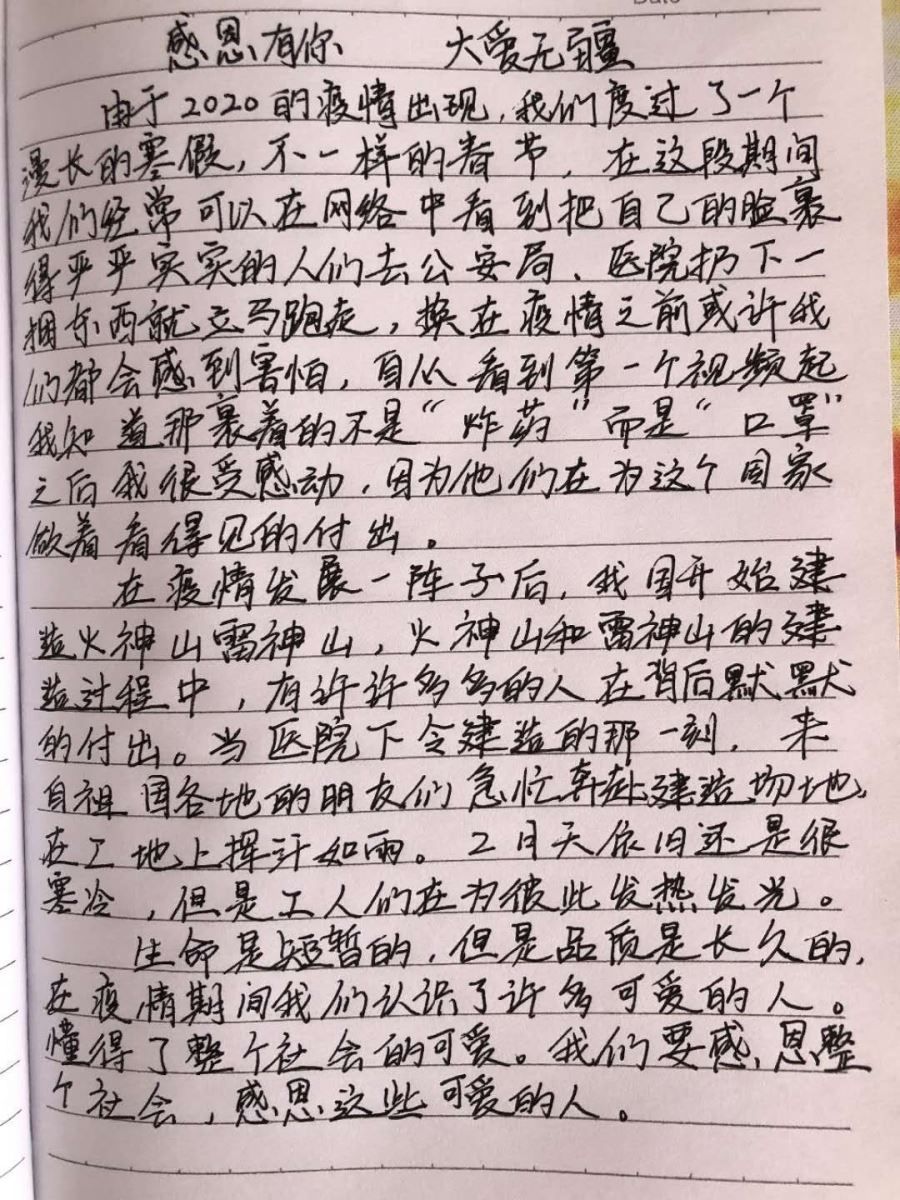 感恩有你 大爱无疆
由于2020的疫情出现,我们度过了一个
漫长的寒假,不一样的春节,在这段期间
我们经常可以在网络中看到把自己的脸裹
得严严实实的人们去公安局、医院扔下一
捆东西就立马跑走,换在疫情之前或许我
们都会感到害怕,自从看到第一个视频起
我知道那裹着的不是“炸药”而是“口罩”
之后我很受感动,因为他们在为这个国家
做着看得见的付出。
在疫情发展一阵子后,我国开始建
造火神山雷神山,火神山和雷神山的建
造过程中,有许许多多的人在背后默默
的付出。当医院下令建造的那一刻,来
自祖国各地的朋友们急忙奔赴建造场地,
在工地上挥汗如雨。2月天依旧还是很
寒冷,但是工人们在为彼此发热发光。
生命是短暂的,但是品质是长久的,
在疫情期间我们认识了许多可爱的人。
懂得了整个社会的可爱。我们要感恩整
个社会,感恩这些可爱的人。